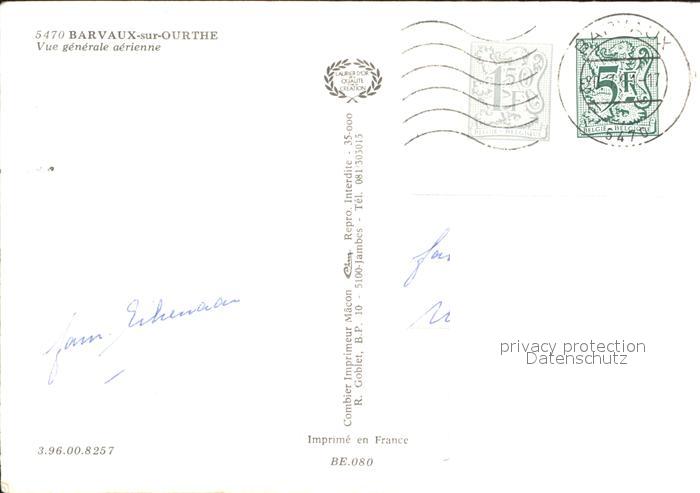 5470 BARVAUX-sur-OURTHE
Vue générale aérienne
LAURIER D'OR
DE LA
QUALITÉ
CRÉATION
1,50 F
BELGIË - BELGIQUE
5 F
BELGIË - BELGIQUE
BARVAUX
-17
5470
Combier Imprimeur Mâcon Cim Repro. Interdite - 35-000
R. Goblet, B.P. 10 - 5100-Jambes - Tél. 081/303015
fam.
fam
privacy protection
Datenschutz
Imprimé en France
3.96.00.8257
BE.080